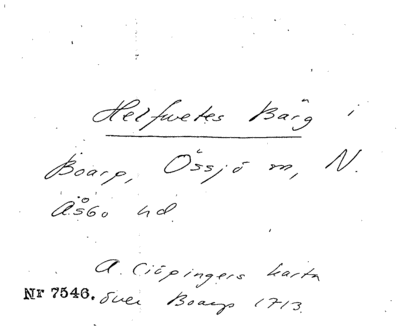 Helfwetes Bärg i
Boarp, Össjö m, N.
Åsbo hd.
A. Ciöpingers karta
Nr 7546. över Boarp 1713.